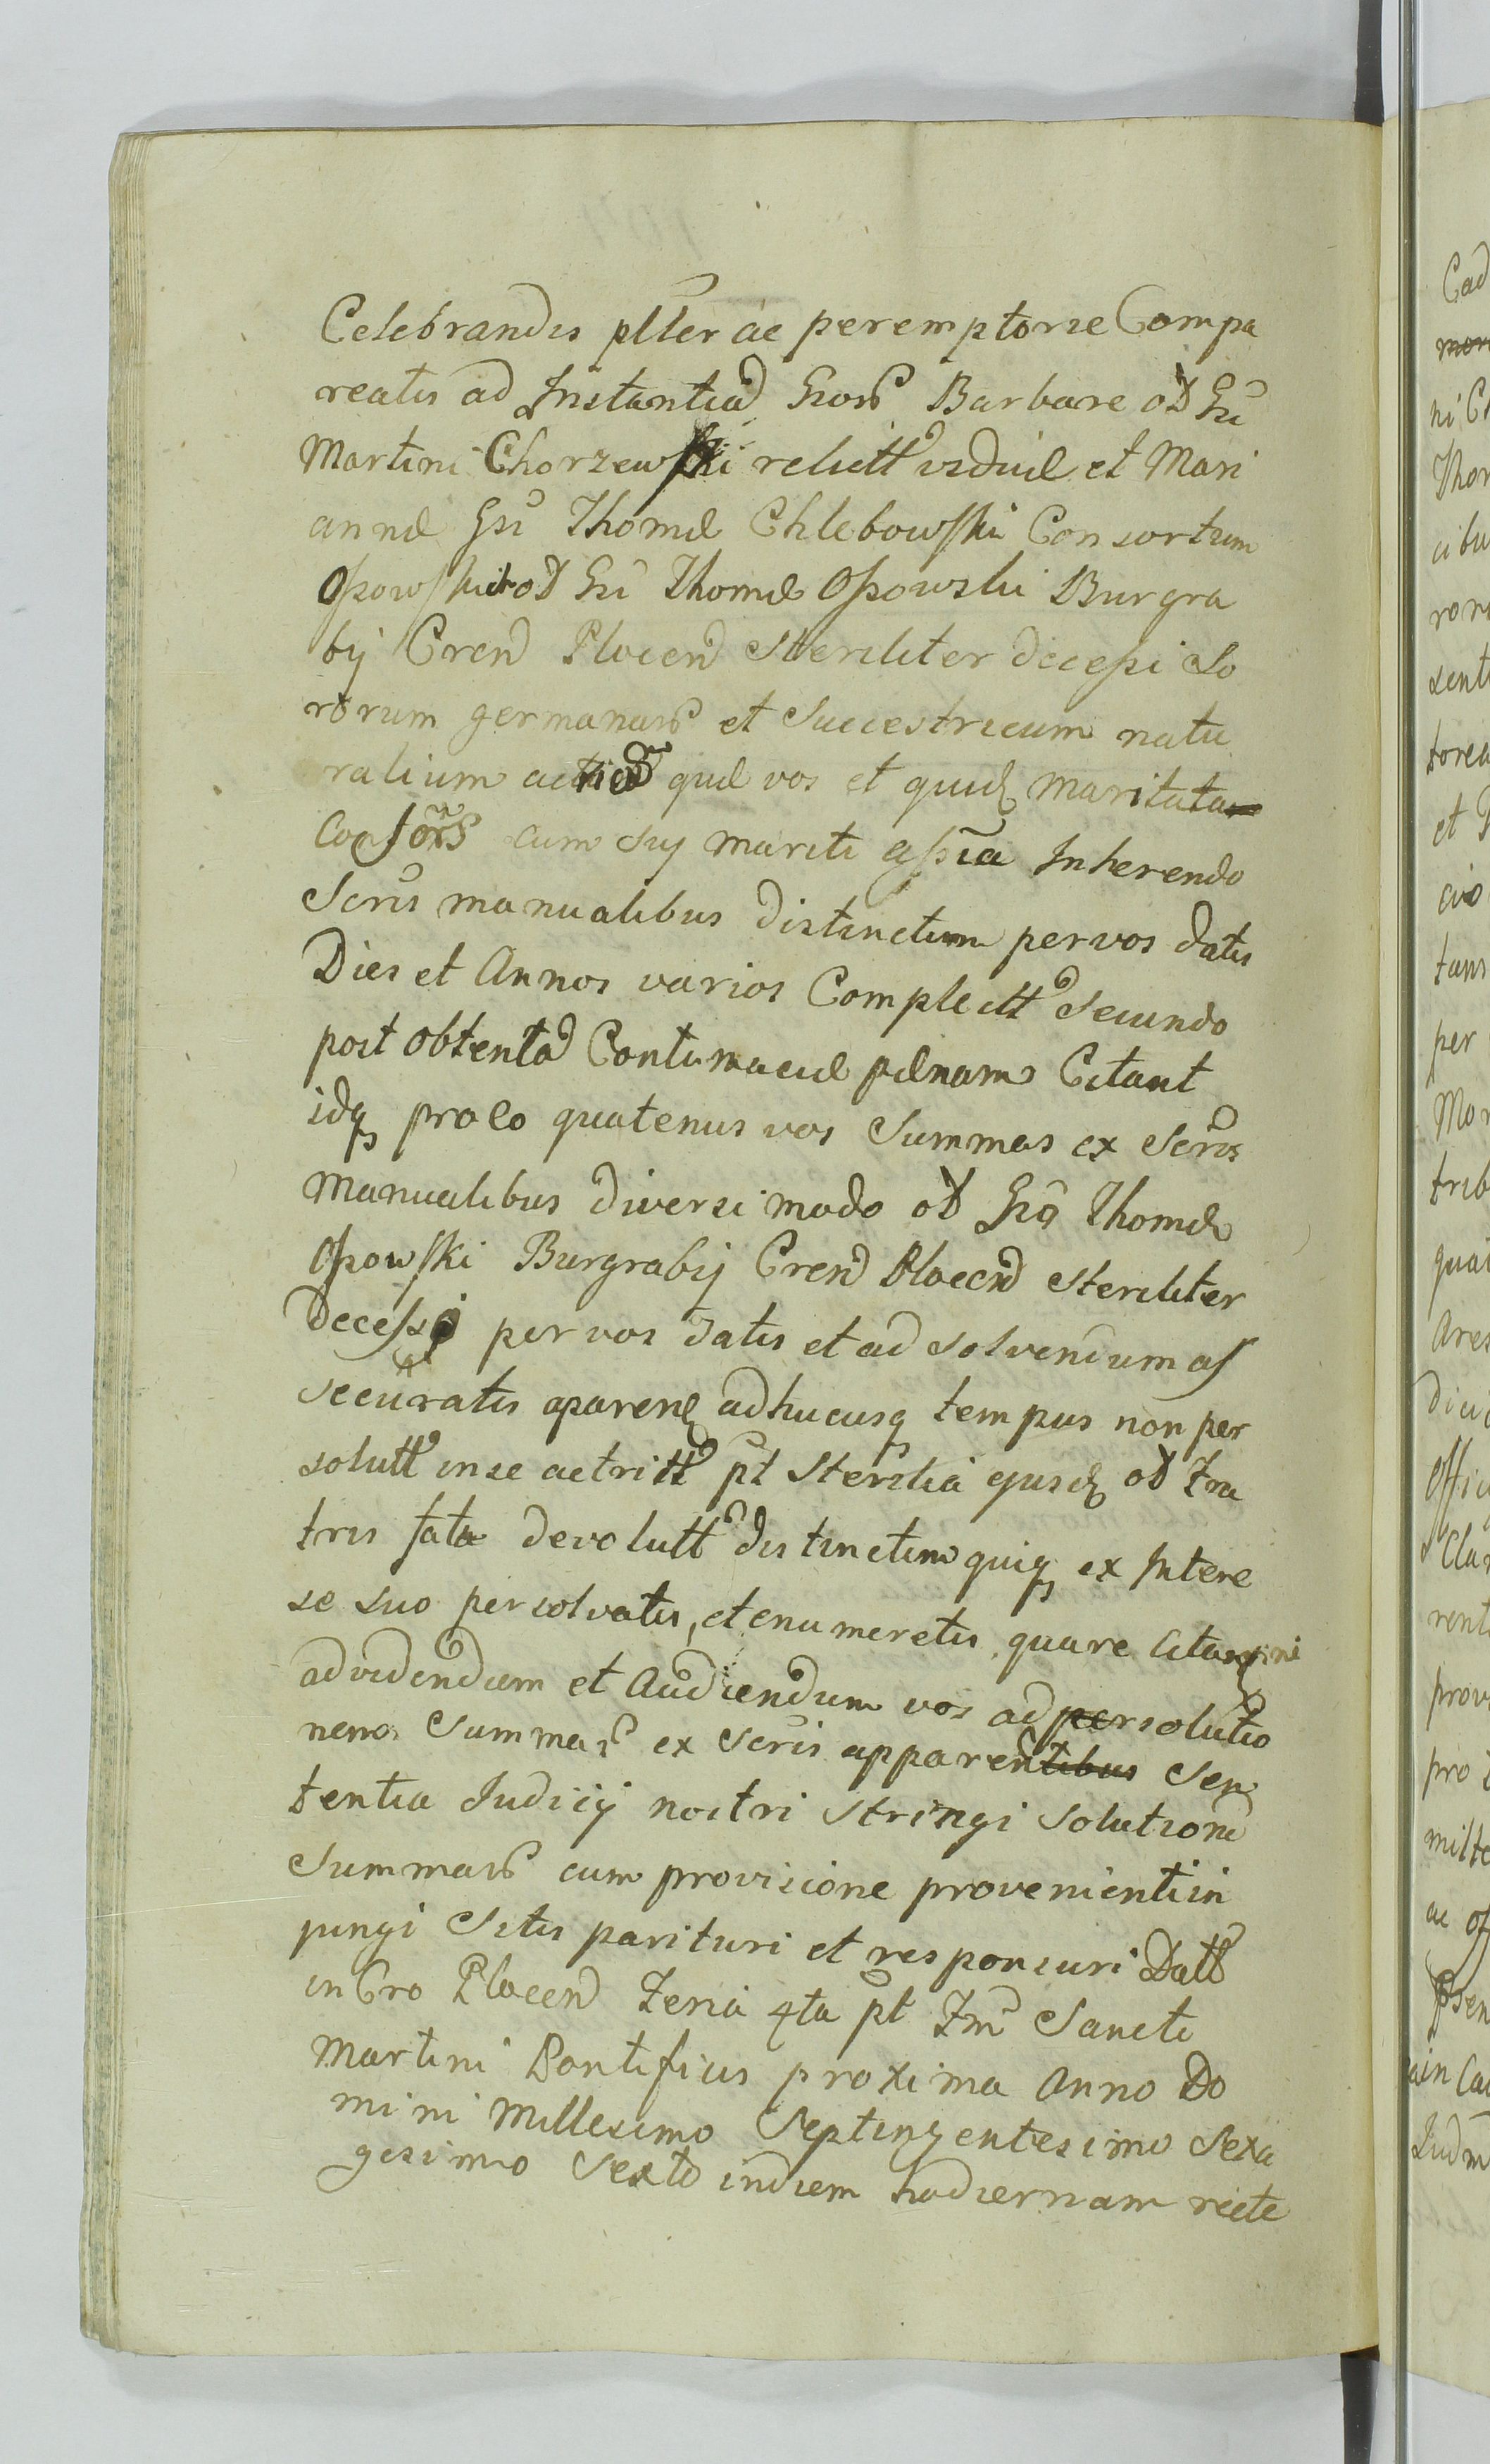 Celebrandis plter ac peremptorie Compa
reatis ad Instantiã Gsorũ Barbare oł Gsi
Martini Chorzewski relictt viduæ et Mari
annæ Gsi Thomæ Chlebowski Consortum
Ossowskich oł Gsi Thomæ Ossowski Burgra
bij Cren Plocen steriliter decessi So
rorum germanarũ et Successtricum natu
ralium actricũ quæ vos et quidẽ maritata
Consors cum suj mariti assĩa Inherendo
Scris manualibus distinctim per vos datis
Dies et Annos varios Complectt secundo
post obtentã Contumaciæ pænam Citant
idq pro eo quatenus vos Summas ex Scris
Manualibus diversimodo oł Gso Thomæ
Ossowski Burgrabij Cren Plocen steriliter
Decesso per vos datis et ad solvendum as
securatis aparen adhucusq tempus non per
solutt in se actritt pt Sterilia ejusd oł Fra
tris fata devolutt distinctim quiq ex Intere
se suo persolvatis, et enumeretis quare Citamini
ad videndum et Audiendum vos ad persolutio
nem Summarũ ex Scris apparentibus Sen
tentia Judicij nostri stringi Solutionẽ
Summarũ cum provisione provenienti in
jungi Sitis parituri et responsuri Datt
in Cro Plocen Feria 4ta pt Fm Sancti
Martini Pontificis proxima Anno Do
mini Millesimo Septingentesimo Sexa
gesimo Sexto in diem hodiernam recte